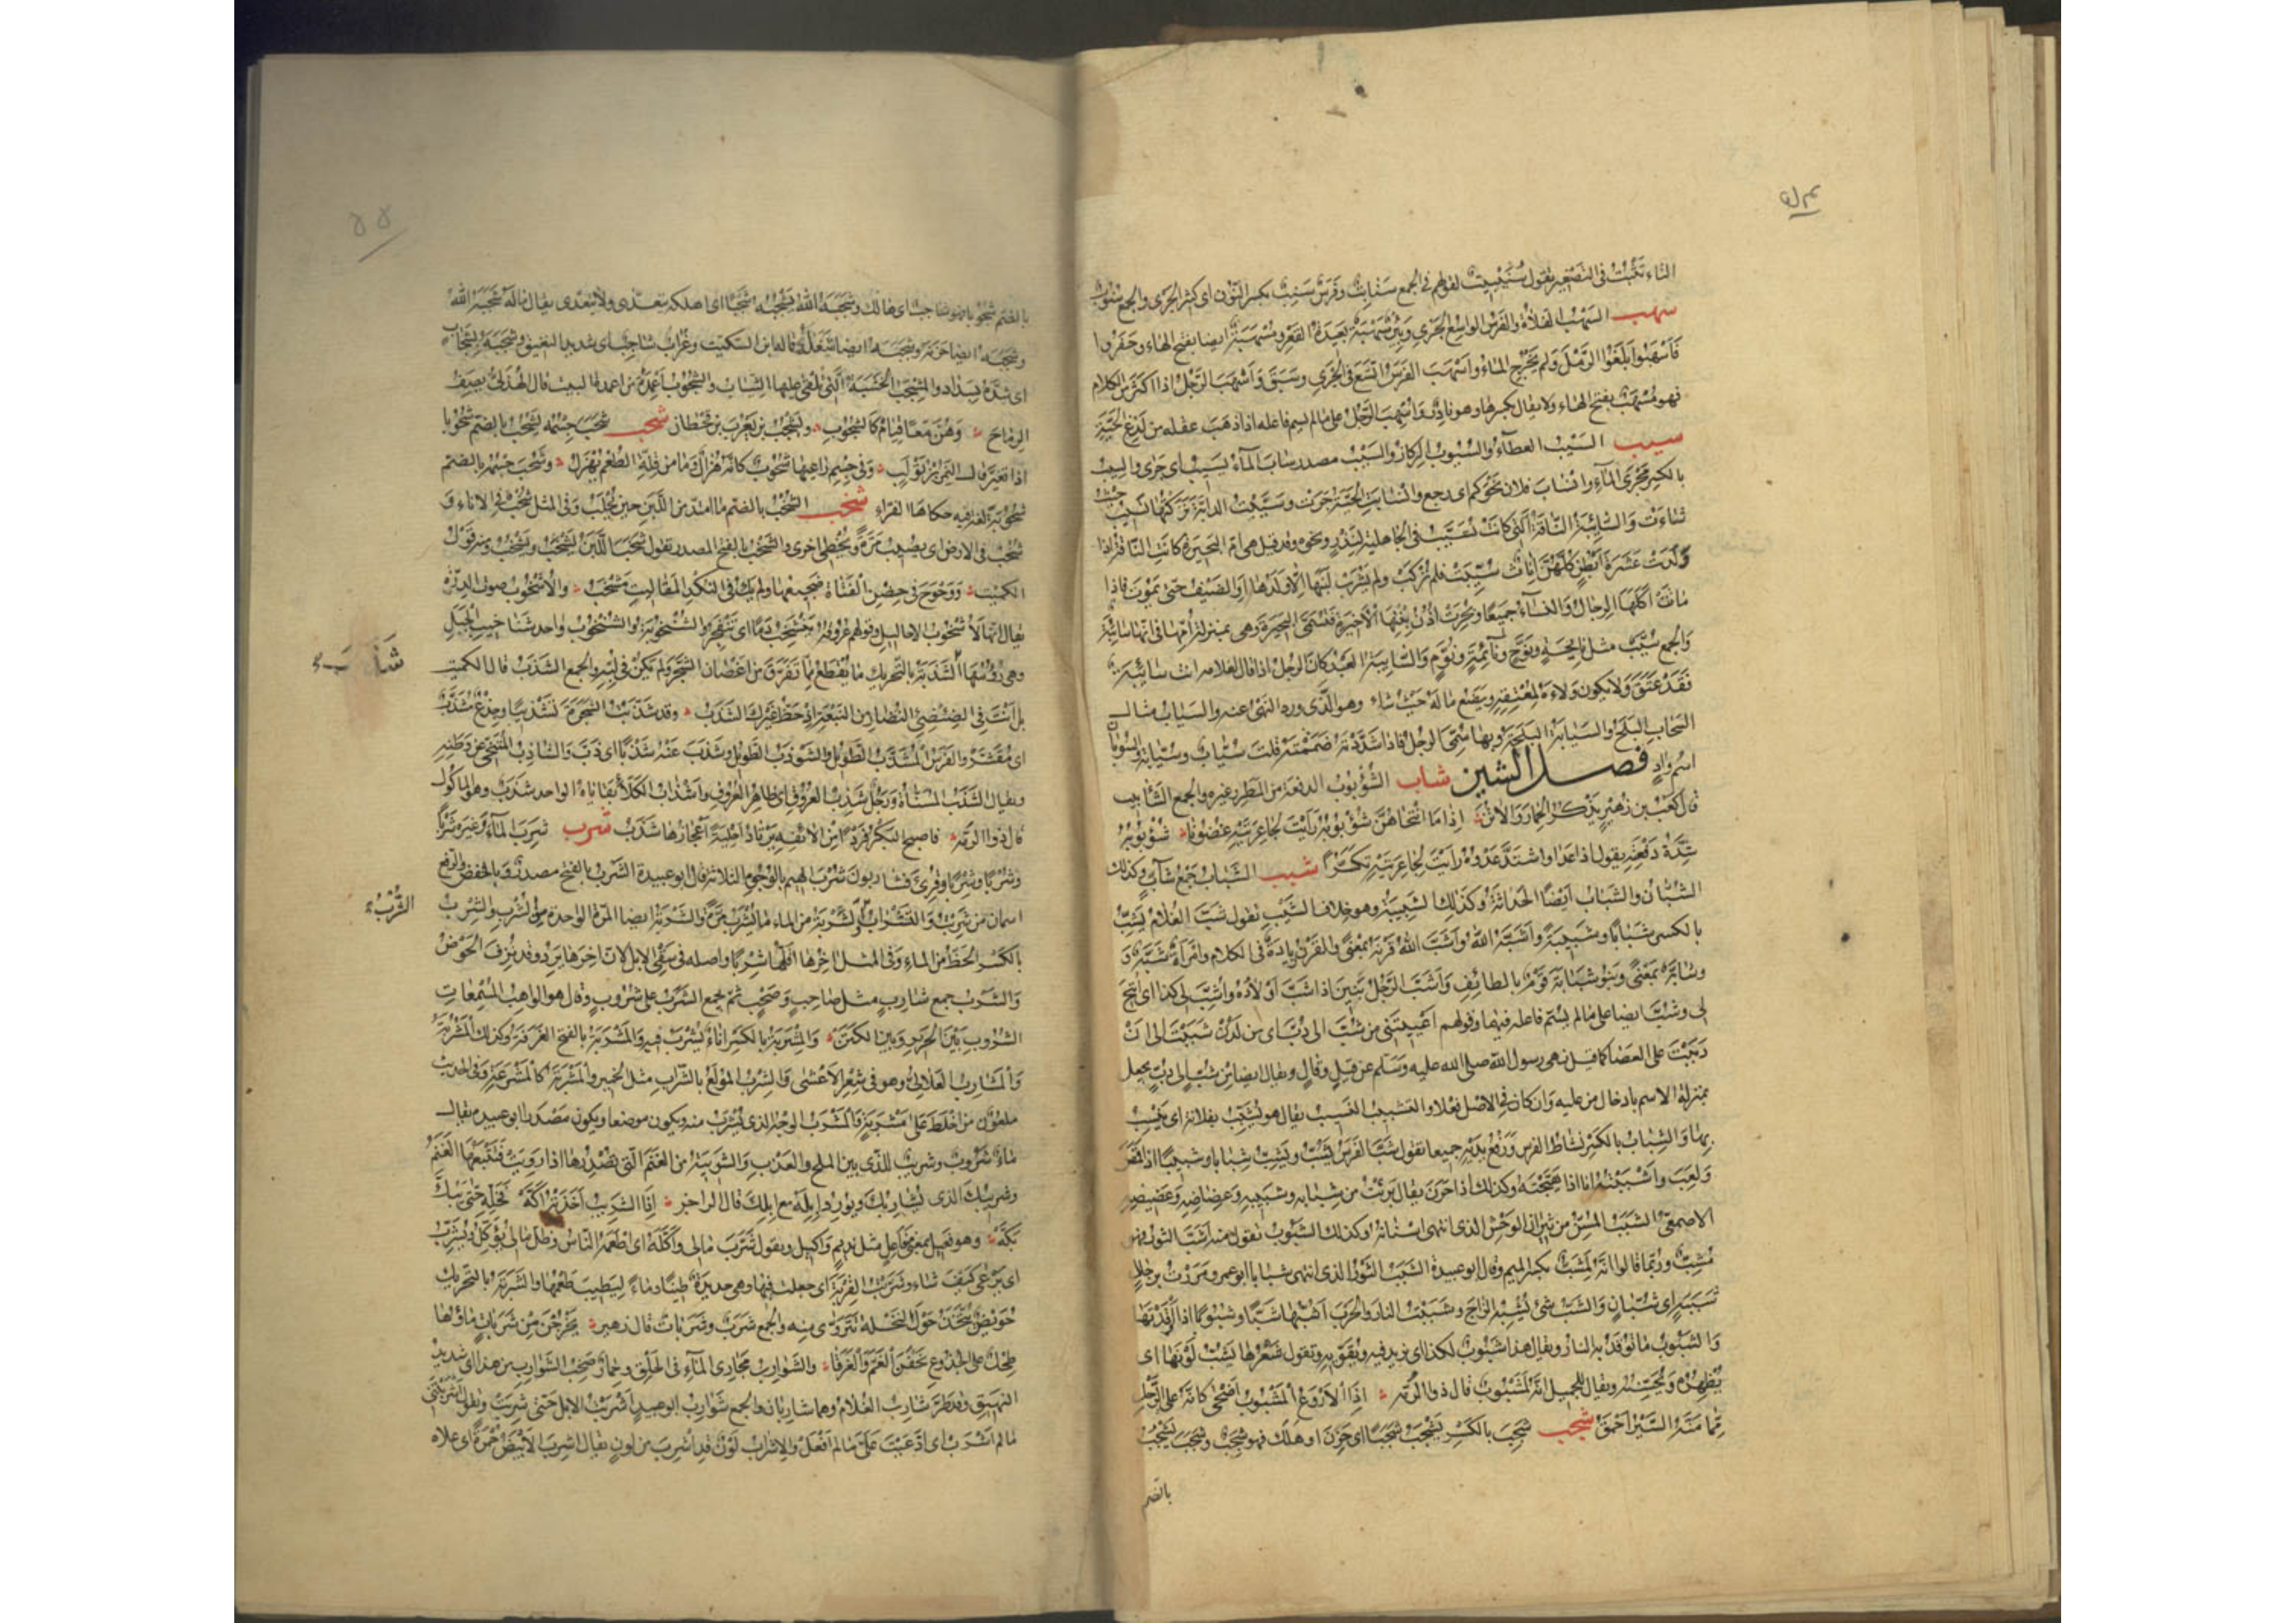 التاء تثبت فى التصغير تقول سُنَيْبِيتَة لقولهم فى الجمع سَنَابِتُ وفَرَسٌ سَنِبٌ بكسر النّون اى كثير الجرى والجمع سُنُوبٌ
سهب السَهْبُ الفلاة والفرس الواسع الجَرْىِ وبِئْرٌ سَهْبَةٌ بَعِيدَةُ القعر ومُسْهَبَةٌ ايضا بفتح الهاء وحَفَرُوا
فَأَسْهَبُوا بَلَغُوا الرَمْلَ ولم يَخْرُجِ الماءُ واَسْهَبَ الفَرَسُ اتَّسَعَ فى الجَرْىِ وسَبَقَ واَسْهَبَ الرَّجُلُ اذا اَكْثَرَ من الكلام
فهو مُسْهَبٌ بفتح الهاء ولا يقال بكسرها وهو نادرٌ وأُسْهِبَ الرَّجُلُ على مالم يسمّ فاعله اذا ذهَبَ عقله من لَدْغِ الحَيَّةِ
سيب السَيْبُ العطآءُ والسُيُوبُ الرِكازُ والسَيْبُ مصدر سابَ المآءُ يَسِيبُ اى جَرَى والسِيبُ
بالكسر مَجْرَى المآءِ وانْسَابَ فلان نَحْوَكم اى رجع وانْسَابَتِ الحَيَّةُ جَرَتْ وسَيَّبْتُ الدابّةَ تَرَكْتُها تَسِيبُ حيث
شاءَتْ والسَائِبَةُ النّاقَةُ الّتى كانَتْ تُسَيَّبُ فى الجاهلية لنَذْرٍ ونحوه وقد قيل هى امّ البَحِيرَةِ كانت النّاقة اذا
وَلَدَتْ عَشَرَةَ اَبْطُنٍ كُلُّهُنَّ اِنَاثٌ سُيِّبَتْ فلم تُرْكَبْ ولم يَشْرَبْ لَبَنَها اِلّا وَلَدُها اَوِ الضَيْفُ حتّى تَمُوتَ فاذا
مَاتَتْ اَكَلَهَا الرِجالُ والنسآءُ جَمِيعًا وبُحِرَتْ اُذُنُ بِنْتِهَا الاَخِيرَةِ فتُسَمَّى البَحِيرَةَ وهى بمنزلة اُمِّها فى انّها سائبة
والجمع سُيَّبٌ مثل نايِحَةٍ ونُوَّحٍ ونَآئِمَةٍ ونُوَّمٍ والسَائِبَةُ العَبْدُ كانَ الرجُلُ اذا قال لغلامه انت سائِبَةٌ
فقَدْ عَتَقَ ولا يكون وَلاءُهُ لِمُعْتِقِهِ ويَضَعُ مالَهُ حَيْثُ شاء وهو الّذى ورد النهى عنه والسَيَابُ مثال
السَحَابِ البَلَحُ والسَيَابَةُ البَلَحَةُ وبها سُمِّىَ الرجل فاذا شَدَّدْتَهُ ضَمَمْتَهُ قلت سُيَّابٌ وسُيَّابَةٌ والسُوبَانُ
اسْمُ وادٍ فصل الشين شاب الشُؤْبُوبُ الدفعة من المطر وغيره والجمع الشَآبِيبُ
قال كَعْبُ بن زُهَيْرٍ يَذْكُرُ الحِمَارَ وَالاُتُنَ اِذَا مَا انْتَحَاهُنَّ شُؤْبُوبُهُ رَاَيْتَ لِجَاعِرَتَيْهِ غُضُونَا شُؤْبُوبُهُ
شِدَّةُ دَفْعَتِهِ يقول اذا عَدَا واشتدَّ عَدْوُهُ رأَيْتَ لِجَاعِرَتَيْهِ تَكَسُّرًا شبب الشَبَابُ جَمْعُ شَآبٍّ وكذلك
الشُبَّانُ والشَبابُ اَيْضًا الحَدَاثَةُ وكَذلِكَ الشَبِيبَةُ وهو خلافُ الشَيْبِ تقول شَبَّ الغُلَامُ يَشِبُّ
بالكسر شَبَابًا وشَبِيبَةً واَشَبَّهُ اللّٰهُ واَشَبَّ اللّٰهُ قَرْنَهُ بمعنًى والقَرْنُ زِيادَةٌ فى الكلام وامْرَأةٌ شَبَّةٌ وَ
وشابَّةٌ بمَعْنًى وبَنُو شَبَابَةَ قَوْمٌ بالطائِفِ واَشَبَّ الرَجُلُ بَنِينَ اذا شَبَّ اَوْلَادُهُ واُشِبَّ لى كذا اى اُتِيحَ
لى وشُبَّ ايضا على مالم يسمّ فاعله فيهما وقولهم اَعْيَيْتَنِى من شُبَّ الى دُبَّ اى من لَدُنْ شَبَبْتَ الى اَنْ
دَبَبْتَ على العَصَا كما قيل نهى رسول اللّه صلى الله عليه وسلم عن قيلَ وقالَ ويقال ايضا من شُبٍّ الى دُبٍّ يجعل
بمنزلة الاسم بادخال من عليه وان كان فى الاصل فعلا والتشبيب النسيب يقال هو يُشَبِّبُ بفلانة اى يَنْسِبُ
بها والشِبَابُ بالكَسْرِ نَشَاطُ الفرس ورَفْعُ يَدَيْهِ جميعا تقول شَبَّ الفَرَسُ يَشِبُّ ويَشُبُّ شِبَابًا وشَبِيبًا اذا قَمَصَ
ولَعِبَ واَشْبَبْتُهُ انا اذا هَيَّجْتَهُ وكذلك اذا حَرَنَ يقال بَرِئْتُ من شِبَابِهِ وشَبِيبِهِ وعِضَاضِهِ وعَضِيضِهِ
الاصمعىّ الشَبَبُ المُسِنُّ من ثِيرَانِ الوَحْشِ الذى انتهى اسنانه وكذلك الشَبُوبُ تقول منه اَشَبَّ الثور فهو
مُشِبٌّ وربّما قالوا انّه لَمِشَبٌّ بكسر الميم وقال ابو عبيدة الشَبَبُ الثَوْرُ الذى انتهى شبابا ابو عمرو مررت برجال
شَبَبَةٍ اى شُبّانٍ والشَبُّ شئ يُشْبِهُ الزاجَ وشَبَبْتُ النارَ والحَرْبَ اَشُبُّهَا شَبًّا وشُبُوبًا اذا اَوْقَدْتَهَا
والشَبُوبُ ما تُوقَدُ به النارُ ويقال هذا شَبُوبٌ لكذا اى يزيد فيه ويُقَوِّيهِ وتقول شَعْرُها يَشُبُّ لَوْنَها اى
يُظْهِرُهُ ويُحَسِّنُهُ ويقال للجميل انَّهُ لَمَشْبُوبٌ قال ذو الرُمَّةِ اِذَا الْاَرْوَعُ الْمَشْبُوبُ اَضْحَى كَاَنَّهُ عَلَى الرَّحْلِ
مِمَّا مَنَّهُ السَّيْرُ اَحْمَقُ شجب شَجِبَ بالكَسْرِ يَشْجَبُ شَجَبًا اى حَزِنَ او هَلَكَ فهو شَجِبٌ وشَجَبَ يَشْجُبُ
بالضم
بالضم شُجُوبًا فهو شاجبٌ اى هالك وشَجَبَهُ اللّٰهُ يَشْجُبُهُ شَجْبًا اى اهلكه يتعدّى ولا يتعدّى يقال مالَهُ شَجَبَهُ اللّٰهُ
وشَجَبَهُ ايضا حَزَنَهُ وشَجَبَهُ ايضا شَغَلَهُ قاله ابن السكيت وغُرَابٌ شاجِبٌ اى شديد النغيق وشَجَبَهُ بِشِجَابٍ
اى سَدَّهُ بِسِدَادٍ والمِشْجَبُ الخَشَبَةُ الّتى تُلْقَى عليها الثياب والشُجُوبُ اَعْمِدَةٌ من اعمدة البيت قال الهُذَلِىُّ يصِفُ
الرِمَاحَ وَهُنَّ مَعًا قِيَامٌ كَالشُّجُوبِ ويَشْجُبُ بن يَعْرُبَ بن قَحْطَانَ شحب شَحَبَ جِسْمُهُ يَشْحُبُ بالضمّ شُحُوبًا
اذا تغيّر قال النَمِرُ بن تَوْلَبٍ وَفِى جِسْمِ رَاعِيهَا شُحُوبٌ كَأَنَّهُ هُزَالٌ وَمَا مِنْ قِلَّةِ الطُعْمِ يُهْزَلُ وشَحُبَ جِسْمُهُ بالضمّ
شُحُوبَةً لغة فيه حكاها الفراء شخب الشُخْبُ بالضمّ ما امتدّ من اللَبَنِ حين يُحْلَبُ وفى المثل شُخْبٌ فى الاناء وَ
شُخْبٌ فى الارض اى يصيب مَرَّةً ويُخْطِى اخرى والشَخْبُ بالفتح المصدر تقول شَخَبَ اللَّبَنُ يَشْخَبُ ويَشْخُبُ ومنه قَوْلُ
الكميت وَوَحْوَحَ فِى حِضْنِ الْفَتَاةِ ضَجِيعُهَا وَلَمْ يَكُ فِى النُّكْدِ الْمَقَالِيتِ مَشْخَبُ والاُشْخُوبُ صوت الدِرَّةِ
يقال انّها لاُشْخُوبُ الاحاليل وقولهم عُرُوقُهُ تَنْشَخِبُ دَمًا اى تَتَفَجَّرُ والشُنْخُوبَةُ والشُنْخُوبُ واحد شَنَاخِيبِ الجَبَلِ
وهى رُؤُسُهَا الشَذَبَةُ بالتحريك ما يُقْطَعُ مِمَّا تَفَرَّقَ من اَغْصَانِ الشَّجَرِ ولم يَكُنْ فى لُبِّهِ والجمع الشَذَبُ قال الكميت
بَلْ اَنْتَ فِى الضِئْضِئِ النُضَارِ مِنَ النَّبْعَةِ اِذْ حَظُّ غَيْرِكَ الشَذَبُ وقد شَذَّبْتُ الشَجَرَةَ تَشْذِيبًا وجِذْعٌ مُشَذَّبٌ
اى مُقَشَّرٌ والفَرَسُ المُشَذَّبُ الطَّوِيلُ والشَّوْذَبُ الطَوِيلُ وشَذَبَ عَنْهُ شَذْبًا اى ذَبَّ والشاذِبُ المُتَنَحِّى عن وَطَنِهِ
ويقال الشَذَبُ المُسَنَّاةُ ورَجُلٌ شَذِبُ العُرُوقِ اى ظاهر العُرُوقِ واَشْذَابُ الكَلَأِ بقاياه الواحد شَذَبٌ وهو المأكول
قال ذو الرمّة فَاَصْبَحَ الْبَكْرُ فَرْدًا مِنْ اَلائِفِهِ يَرْتَادُ اَحْلِيَةً اَعْجَازُهَا شَذَبُ شرب شَرِبَ المآءَ وغيرَهُ شُرْبًا
وشَرْبًا وشِرْبًا وقُرِئَ فَشَارِبُونَ شُرْبَ الْهِيمِ بالوُجُوهِ الثلاثة قال ابو عبيدة الشَرْبُ بالفتح مصدرٌ وبالخفض والرفع
اسمان من شَرِبْتُ والتَشْرَابُ الشُّرْبُ والشَّرْبَةُ من الماء ما يُشْرَبُ مَرَّةً والشَرْبَةُ ايضا المَرَّةُ الواحدة من الشُرْبِ والشِرْبُ
بالكسر الحَظُّ من الماء وفى المثل آخِرُها اَقَلُّهَا شِرْبًا واصله فى سَقْىِ الاِبِلِ لانّ آخِرَها يَرِدُ وقد نُزِفَ الحَوْضُ
والشَرْبُ جمع شَارِبٍ مثل صَاحِبٍ وصَحْبٍ ثم يجمع الشَرْبُ على شُرُوبٍ وقال هو الواهب المُسْمِعَاتِ
الشُرُوبَ بَيْنَ الْحَرِيرِ وَبَيْنَ الْكَتَنْ والمِشْرَبَةُ بالكسر اناءٌ يُشْرَبُ فيه والمَشْرَبَةُ بالفتح الغرفة وكذلك المَشْرُبَةُ
والمَشَارِبُ العَلَالِىُّ وهو فى شِعْرِ الاَعْشَى والشِرِّيبُ المُوْلَعُ بالشَّرَابِ مثل الخِمِّيرِ والمَشْرَبَةُ كالمَشْرَعَةِ وفى الحديث
ملعون من اَحَاطَ عَلَى مَشْرَبَةٍ والمَشْرَبُ الوجه الذى يُشْرَبُ منه ويكون موضعا ويكون مَصْدَرًا ابو عبيدة يقال
ماءٌ شَرُوبٌ وشَرِيبٌ للّذى بين الملح والعَذْبِ والشَرُوبَةُ من الغَنَمِ الّتى تُصْدِرُها اذا رَوِيَتْ فتَتْبَعُهَا الغَنَمُ
وشَرِيبُكَ الذى يُشَارِبُكَ ويُورِدُ اِبِلَهُ مع اِبِلِكَ قال الراجز اِذَا الشَّرِيبُ اَخَذَتْهُ اَكَّهْ فَخَلِّهِ حَتَّى يَبُكَّ
بَكَّهْ وهو فعيل بمعنى مُفَاعِلٍ مثل نديمٍ واكِيلٍ ويقول شَرَّبَ مالى واَكَّلَهُ اى اَطْعَمَهُ النّاسَ وظَلَّ مَالى يُؤَكَّلُ ويُشَرَّبُ
اى يَرْعَى كَيْفَ شاء وشَرَّبْتُ القِرْبَةَ اى جعلت فيها وهى جديدةٌ طِينًا وماءً لِيَطِيبَ طَعْمُها والشَرَبَةُ بالتحريك
حُوَيْضٌ يُتَّخَذُ حَوْلَ النَخْلَةِ تَتَرَوَّى مِنه والجمع شَرَبٌ وشَرَبَاتٌ قال زهير يَخْرُجْنَ مِنْ شَرَبَاتٍ مَاؤُهَا
طَحِلٌ عَلَى الجُذُوعِ يَخَفْنَ الْغَمَّ وَالْغَرَقَا والشَوَارِبُ مَجَارِى المآءِ فى الحَلْقِ وحِمَارٌ صَخِبُ الشَوَارِبِ من هذا اى شديد
النَهِيقِ وقد طَرَّ شَارِبُ الغُلَامِ وهما شاربان والجمع شَوَارِبُ ابو عبيد اَشْرَبْتُ الابل حَتَّى شَرِبَتْ وتقول اَشْرَبْتَنِى
مالم اَشْرَبْ اى ادَّعَيْتَ عَلَىَّ مالم اَفْعَلْ والاِشْرَابُ لَوْنٌ قد اُشْرِبَ من لونٍ يقال اُشْرِبَ الاَبْيَضُ حُمْرَةً اى علاه
الشُّرْبُ